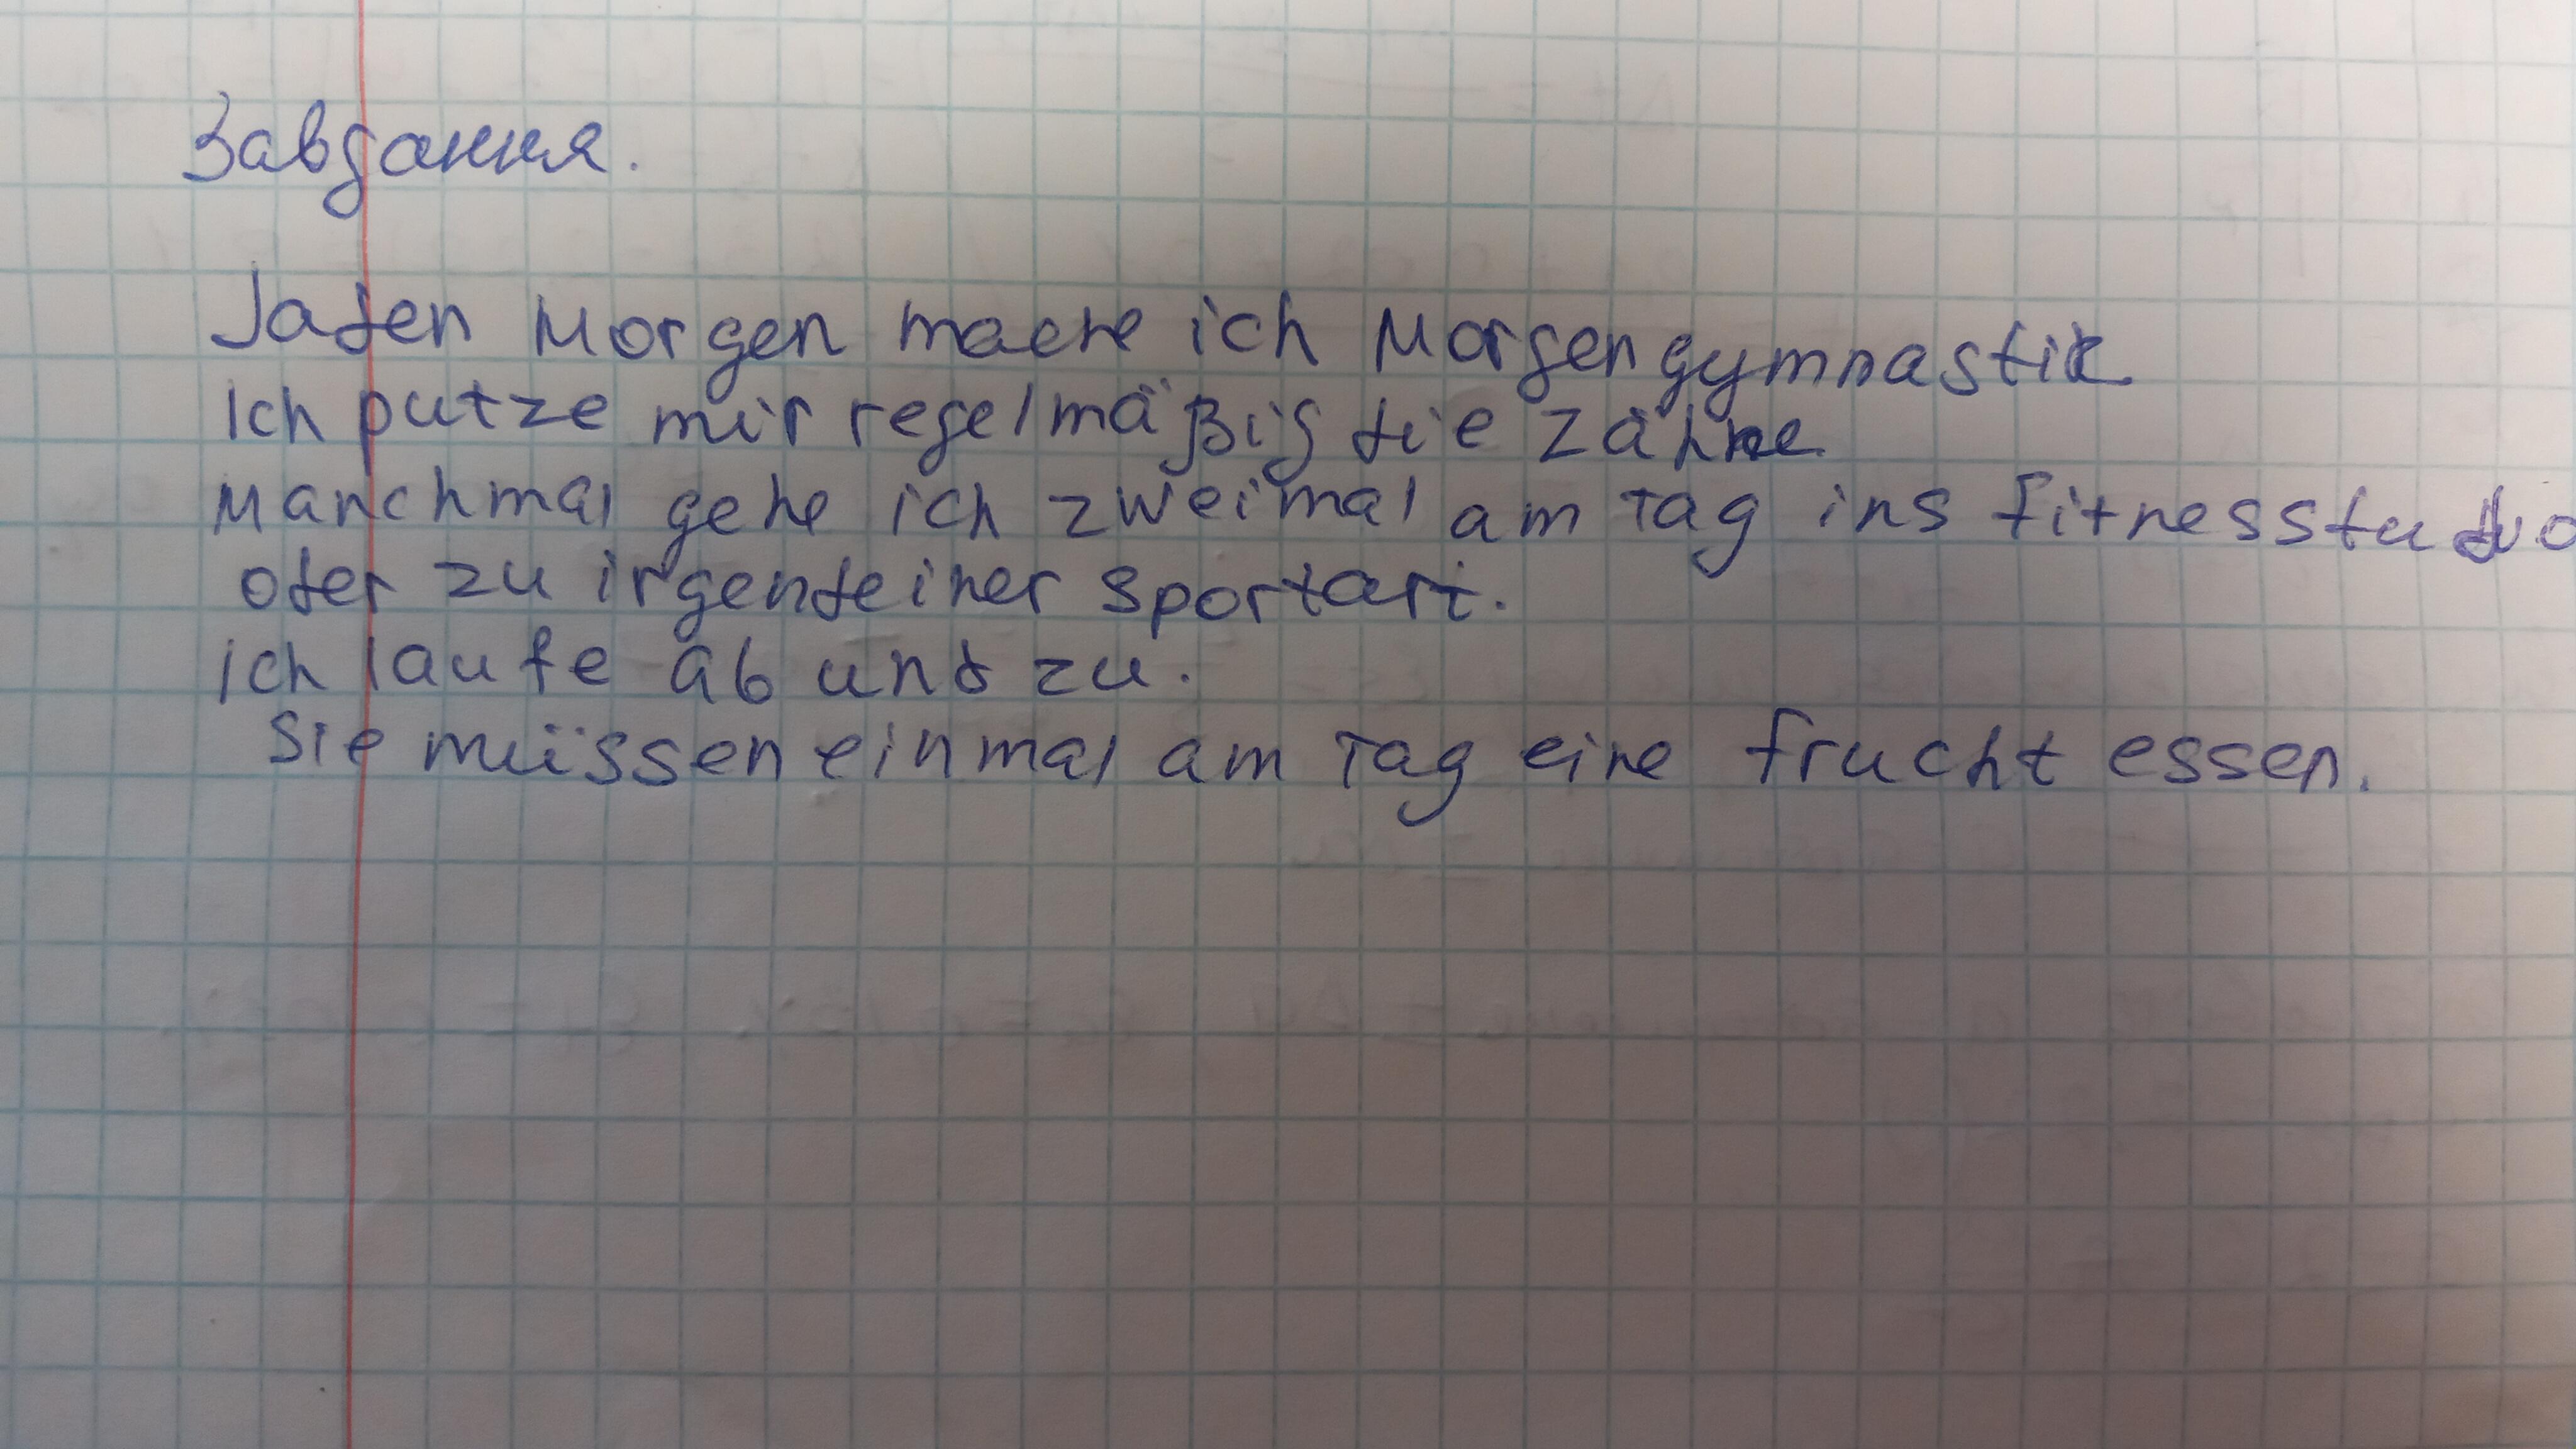 Завдання.
Jaden Morgen mache ich Morgengymnastik
Ich putze mir regelmäßig die Zähne
Manchmal gehe ich zweimal am Tag ins fitnesstudio
oder zu irgendeiner sportart.
ich laufe ab und zu.
Sie müssen einmal am Tag eine frucht essen.